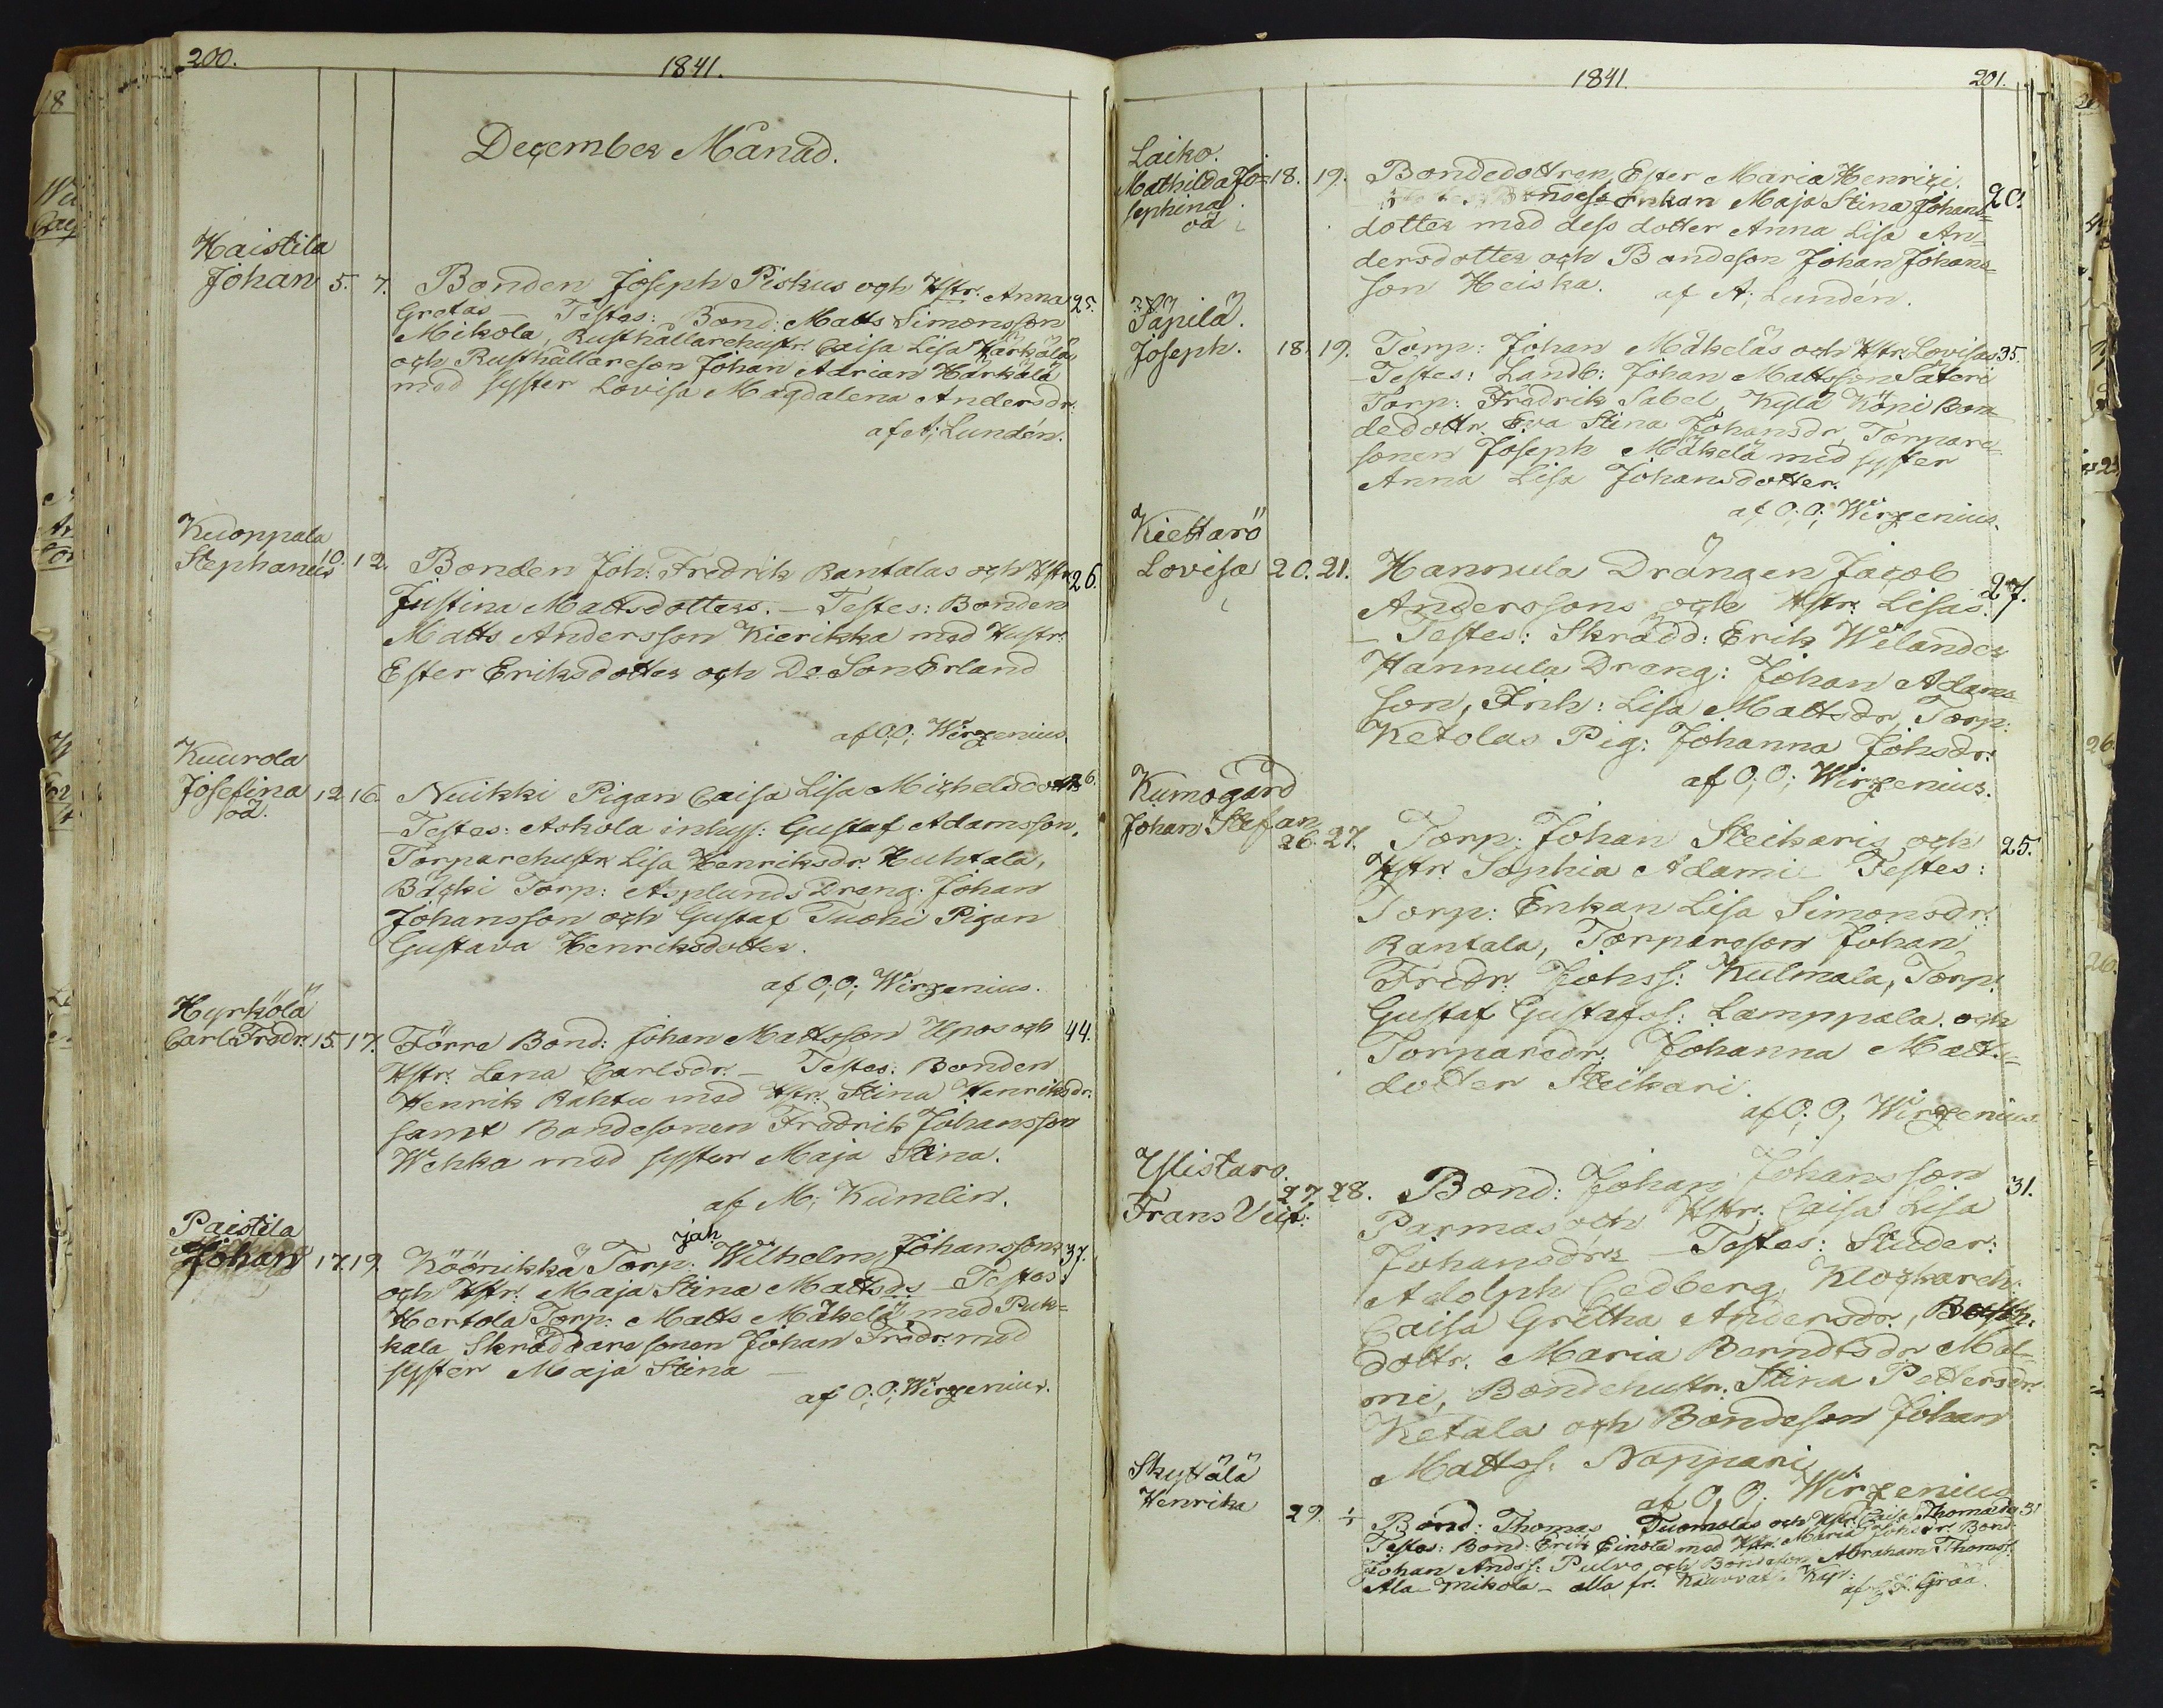 200.
1841.
December Månad.
Haistila
Johan 5. 7. Bonden Joseph Piskus och Hstr. Anna 25.
Gretas – Testes: Bond: Matts Simonsson
Mikola, Rusthållarehustr. Caisa Lisa Härkälä
och Rusthållareson Johan Adrian Härkälä
med syster Lovisa Magdalena Andersdr.
af A; Lundén.
Kuoppala
Stephanus 10. 12. Bonden Joh. Fredrik Rantalas och Hstr. 26.
Justina Mattsdotters. – Testes: Bonden
Matts Andersson Kierikka med Hustr.
Ester Eriksdotter och Do Son Erland
af O; O; Wirzenius.
Kuurola
Josefina 12. 16. Nuikki Pigan Caisa Lisa Michelsdotter 26.
oä.
– Testes: Askola inhys: Gustaf Adamsson,
Torparehustr. Lisa Henriksdr. Huhtala,
Bäcki Torp: Asplunds Dreng: Johan
Johansson och Gustaf Tuomi Pigan
Gustava Henriksdotter.
af O; O; Wirzenius.
Hyrkölä
Carl Fredr. 15. 17. Förre Bond: Johan Mattsson Upos och 44.
Hstr. Lena Carlsdr. – Testes: Bonden
Henrik Rahtu med Hstr. Stina Henriksdr.
samt Bondesonen Fredrik Johansson
Wehka med syster Maja Stina.
af M; Kumlin.
Paistila
jah
Johan 17. 19. Köönikkä Torp: Wilhelm Johanssons 37.
och Hstr. Maja Stina Mattsdrs – Testes:
Hertola Torp: Matts Mäkelä med Puk=
kala Skräddare sonen Johan Fredr. med
syster Maja Stina –
af O; O; Wirzenius.
1841.
201.
Laiko.
Mathilda Jo= 18. 19. Bondedottren Ester Maria Henrici.
sephina.
oä
Enkan Maja Stina Johans= 20.
dotter med dess dotter Anna Lisa An=
dersdotter och Bondeson Johan Johans=
son Heiska. af A; Lundén.
Säpilä.
Joseph. 18. 19. Torp: Johan Mäkeläs och Hstr. Lovisas 35.
– Testes: Landb: Johan Mattsson Säteri
Torp: Fredrik Sabel, Kylä Köni Bon
dedottr. Eva Stina Johansdr, Torpare
sonen Joseph Mäkelä med syster
Anna Lisa Johansdotter.
af O; O; Wirzenius.
Kiettarö
Lovisa 20. 21. Hannula Drängen Jacob
Anderssons och Hstr. Lisas. 27.
– Testes: Skrädd: Erik Welander
Hannula Dreng: Johan Adams
son, Inh: Lisa Mattsdr, Torp:
Ketolas Pig: Johanna Johsdr.
af O; O; Wirzenius.
Kumogård
Johan Stefan
26. 27. Torp: Johan Steikaris och 25.
Hstr. Sophia Adami Testes:
Torp: Enkan Lisa Simonsdr.
Rantala, Torpareson Johan
Fredr: Johss: Kulmala, Torp:
Gustaf Gustafss: Lamppala. och
Torparedr. Johanna Matts=
dotter Steikari.
af O; O; Wirzenius.
Ylistaro.
Frans Vict: 27. 28. Bond: Johan Johansson 31.
Parmas och Hstr. Caisa Lisa
Johansdrs – Testes: Studer:
Adolph Cedberg, Klockareh:
Caisa Gretha Andersdr.,
dottr. Maria Berndtsdr Mal=
mi, Bondehustr. Stina Pettersdr.
Ketala och Bondeson Johan
Mattss: Nappari
af O; O; Wirzenius
Skyttälä
Henrika 29. 1/1 Bond: Thomas Tuomolas och Hstrs Caisa Thomasdrs 31
Testes: Bond: Erik Einola med Hstr. Maria Johsdr. Bond
Johan Andss: Pulvo och Bondeson Abraham Thomss:
Ala-Mikola – alla fr. Kauvatsa Kap:
af Gröö.